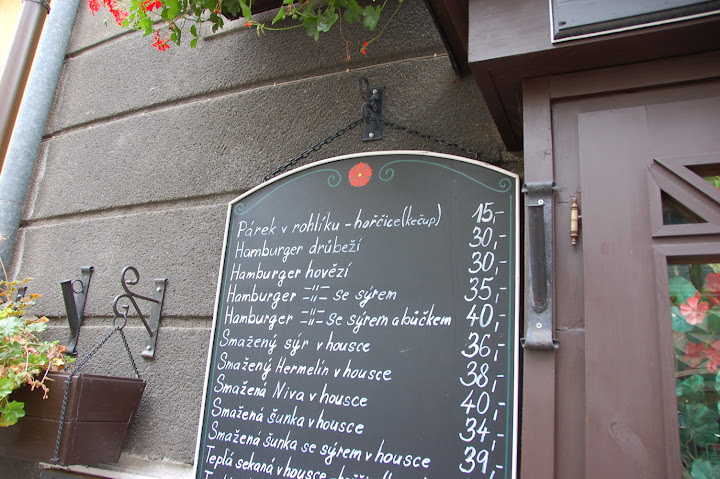 Párek v rohlíku - hořčice (kečup) 15,-
Hamburger drůbeží 30,-
Hamburger hovězí 30,-
Hamburger -〃- se sýrem 35,-
Hamburger -〃- se sýrem a bůčkem 40,-
Smažený sýr v housce 36,-
Smažený Hermelín v housce 38,-
Smažená Niva v housce 40,-
Smažená šunka v housce 34,-
Smažená šunka se sýrem v housce 39,-
Teplá sekaná v housce